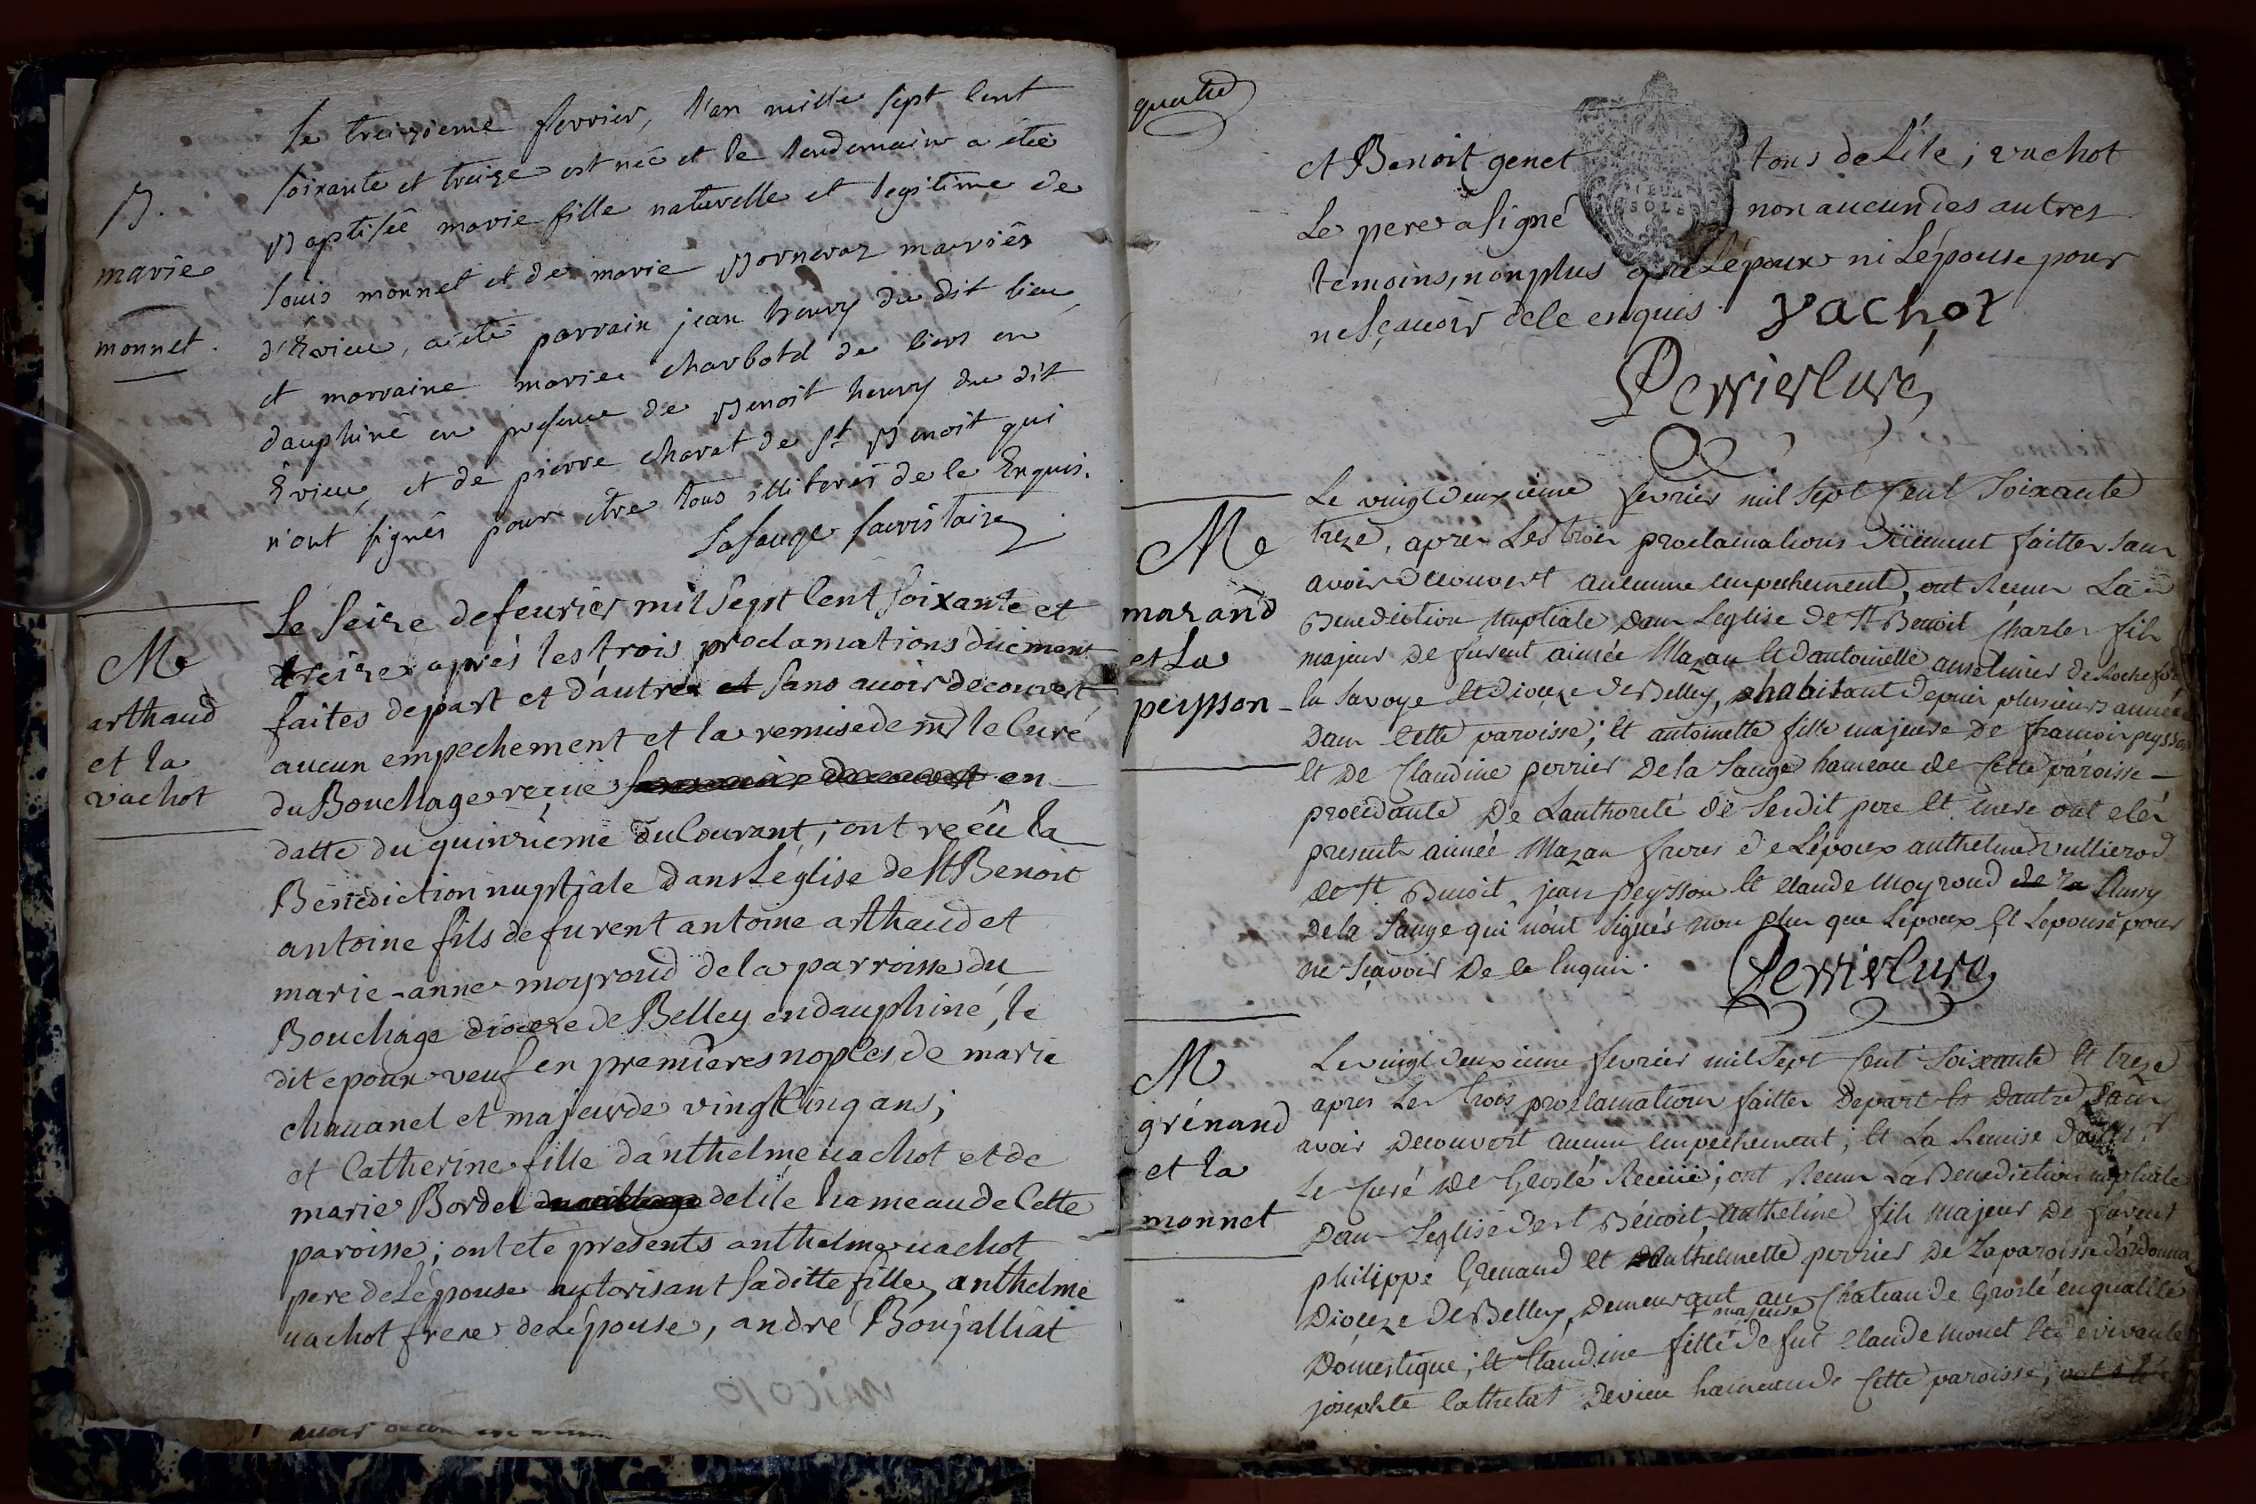 Le treizieme fevrier, l'an mille sept cent
soixante et treize est née et le lendemain a étée
B.
Baptisée marie fille naturelle et legitime de
marie
louis monnet et de marie Bornaraz mariés
monnet.
d'Evieu, a été parrain jean henry du dit lieu,
et marraine marie charbotel de liers en
dauphiné en presence de Benoit henry du dit
Evieu, et de pierre charet de St Benoit qui
n'ont signés pour être tous illiterés de le Enquis.
Lasauge sacristaire
Me
arthaud
et la
vachot
Le Seize defeurier mil Sept Cent soixante et
treize aprés les trois proclamations duement
faites depart et d'autres et sans auoir decouvert
aucun empechement et la remise de mr le Curé
du Bouchage reçuë en
datte du quinzieme du Courant; ont reçû la
Bénédiction nuptiale dans L'église de St Benoit
antoine fils de furent antoine arthaud et
marie-anne moyroud de la parroisse du
Bouchage dioceze de Belley en dauphiné, le
dit epoux veuf en premieres nopces de marie
chauanel et majeur de vingt Cinq ans;
et Catherine fille d'anthelme uachot et de
marie Bordel de l'ile hameau de Cette
paroisse; ont été presents anthelme uachot
pere de L'épouse autorisant sa ditte fille, anthelme
uachot frere de L'épouse, andré Boujalliat
quatre
et Benoit genet tous de L'ile; vachot
DEUX
SOLS
Le pere a signé non aucun des autres
temoins, non plus que L'époux ni L'épouse pour
ne sçauoir de le enquis. vachot
Perrier Curé
Me
mazand
et La
peysson
Le vingt deuxieme fevrier mil sept Cent Soixante
treze, apres Les trois proclamations duement faittes sans
avoir decouvert aucunne empechement, ont Recus La
Benediction Nuptiale dans Leglise de St Benoit Charles fils
majeur de furent aimée Mazan et d'antoinette anselmier de Rochefort
la Savoye et dioceze de Belley, habitant depuis plusieurs années
dans Cette paroisse; et antoinette fille majeure de francois peysson
et de Claudine perrier de la Sauge hameau de Cette paroisse
procedante de Lauthorité de Sesdit pere et mere ont etés
presents aimée Mazan freres de Lépoux anthelme vullierod
de St. Benoit, jean peysson et Claude Moyroud de la
de la Sauge qui n'ont signés non plus que Lépoux et Lepouse pour
ne sçavoir de le Enquis. Perrier Curé
M
grénand
et la
monnet
Le vingt deuxieme fevrier mil sept Cent Soixante et treze
apres Les trois proclamations faittes depart et dautre sans
avoir decouvert aucun empechement; et La Remise de
Le Curé de Groslé Recüie; ont Recus La Benediction nuptiale
dans Léglise de St Bénoit, anthelme fils majeur de furent
philippe Grenand et danthelmette perrier de La paroisse dordonna
dioceze de Belley, demeurant au Chateau de Groslé en qualité
+ majeure
domestique; et Claudine fille + de fut Claude Monet et de vivante
josephte Cathelat devieu hameau de Cette paroisse; ont été